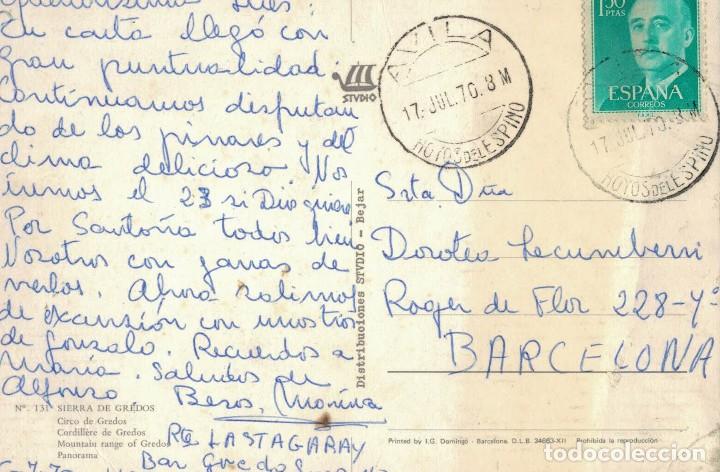 Queridísima Inés:
Tu carta llegó con
gran puntualidad.
Continuamos disfrutan
do de los pinares y del
clima delicioso Nos
iremos el 23 si Dios quiere
Por Santoña todos bien
Nosotros con ganas de
verlos. Ahora salimos
de excursión con unos tros
de Gonzalo. Recuerdos a
María. Saludos de
Alfonso. Besos,
Nº. 131 SIERRA DE GREDOS
Circo de Gredos
Cordillère de Gredos
Mountain range of Gredos
Panorama
Rte LASTAGARAY
Bar Gredos
STVDIO
Distribuciones STVDIO - Bejar
AVILA
17. JUL. 70. 8 M
HOYOS DEL ESPINO
1,50
PTAS
ESPAÑA
CORREOS
17 JUL. 70. 8 M
HOYOS DEL ESPINO
Srta. Dña
Dorotea Lecumberri
Roger de Flor 228-4º
BARCELONA
Printed by I.G. Domingo - Barcelona. D.L.B. 24663-XII Prohibida la reproducción